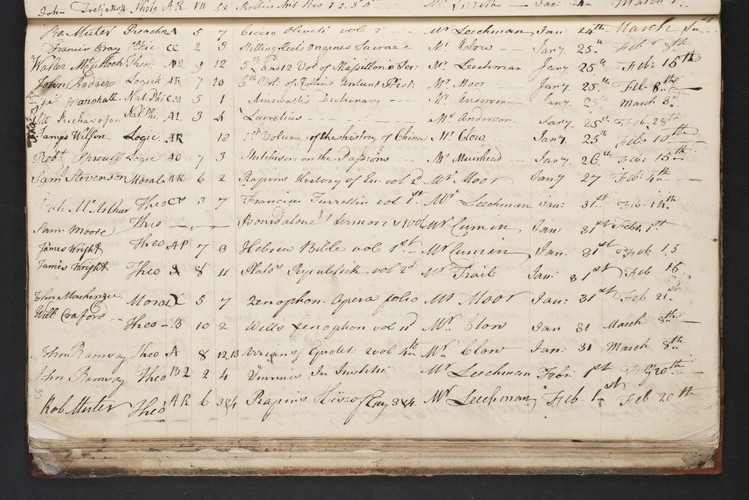 Ro: Muter Preachr A 5 7 Cicero Oliveti vol 2 Mr Leechman Jan: 24th March
Francis Gray Theo CC 2 3 Stillingfleets Origines Sacrae Mr Clow Jany 25th Feb 8th
Walter McCulloch Theo: 9 12 5th and 12 Vol of Massillons Ser: Mr Leechman Jany 25th Feb: 15th
John Rodger Logick AR 7 10 5th Vol: of Rollin Antient Hist: Mr Moor Jany 25th Feb 8th
Marshall Nat: Phi 5 1 Ainsworths Dictionary Mr Anderson Jany 25th March 8d
Will Richardson Nat Phi: AL 3 4 Mr Anderson Jany 25th Feb 28th
James Wilson Logic AR 12 1st Volume of the history of China Mr Clow Jany 25th Feb 10th
Robt Logic AO 7 3 Hutchison on the Passions Mr Muirhead Jany 26th Feb: 15th
Saml Stevenson Moral AR 6 2 Rapins History of En: vol 2 Mr Moor Jany 27 Feb: 4th
Joh McArthur Theo CP 3 7 Francisci Turrettin vol 1st Mr Leechman Jan: 31st Feb: 14th
Sam: Moore Theo Bourdaloue Sermons Mr Cumin Jan: 31st Feb. 1st
James Wright Theo AP 7 3 Hebrew Bible vol 1st Mr Cumin Jan. 31st Feb 15
James Wright Theo A 8 11 Platos Republick vol 2d Mr Trail Jan: 31st Feb 16
John Mackenzie Moral X 5 7 Xenophon: Opera folio Mr Moor Jan: 31st Feb 21st
Will Craford Theo B 10 2 Wells Xenophon vol Mr Clow Jan 31 March 8th
John Ramsay Theo A 8 12 13 2 vol 4th Mr Clow Jan: 31 March 8th
John Ramsay Theo B2 2 4 Vinnius In Institu Mr Leechman Feb: 1st Feb 20th
Rob Muter Theo AR 6 3&4 Rapins 3&4. Mr Leechman Feb 1st Feb 20th